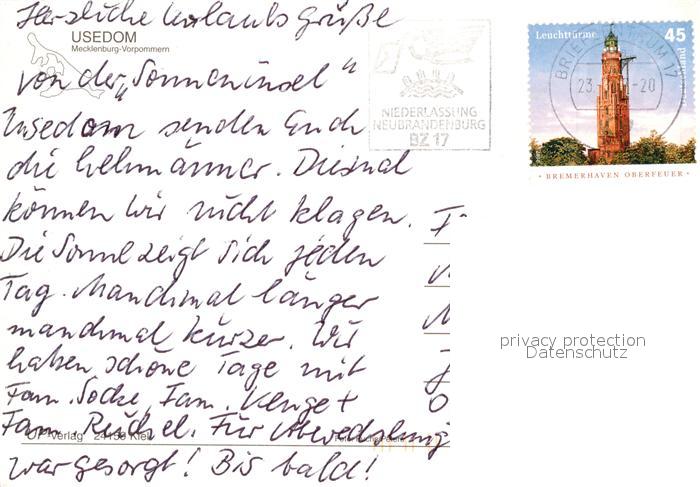 Herzliche Urlaubsgrüße
USEDOM
Mecklenburg-Vorpommern
von der „Sonneninsel“
Usedom senden Euch
die Lehmänner. Diesmal
können wir nicht klagen.
Die Sonne zeigt sich jeden
Tag. Manchmal länger
manchmal kürzer. Wir
haben schöne Tage mit
Fam. Socke, Fam.
Fam. Für Abwechslung
war gesorgt! Bis bald!
Verlag 24159 Kiel
NIEDERLASSUNG
NEUBRANDENBURG
BZ 17
BRIEFZENTRUM 17
23. -20
Leuchttürme
45
Deutschland
• BREMERHAVEN OBERFEUER •
privacy protection
Datenschutz